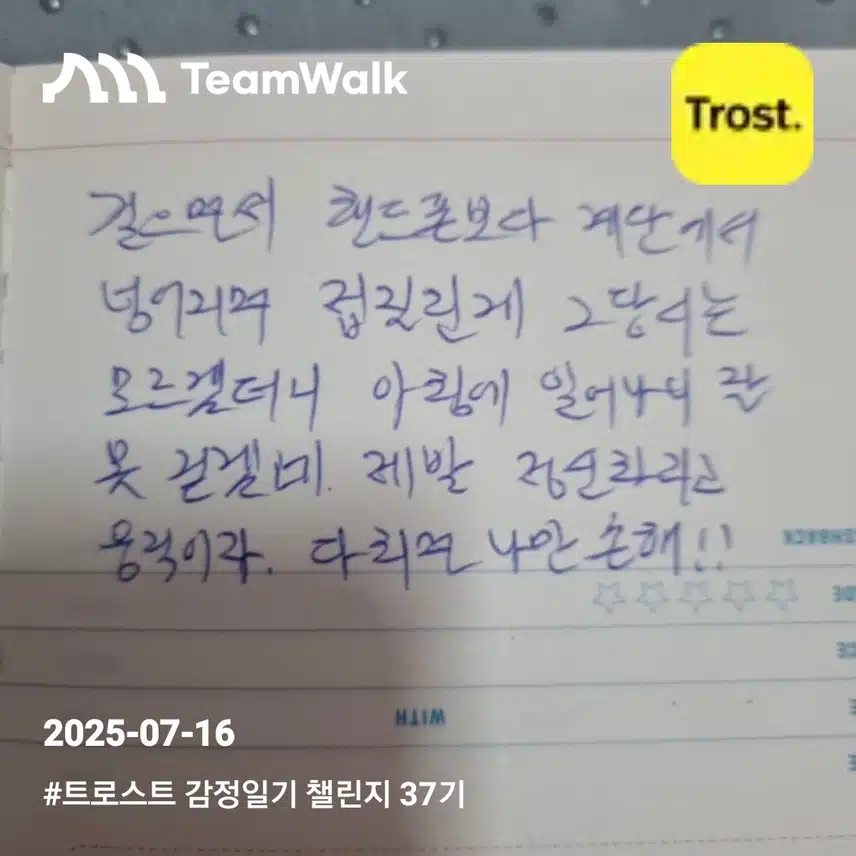 TeamWalk
Trost.
걸으면서 핸드폰보다 계단에서
넝어지며 접질린게 그당시는
모르겠더니 아침에 일어나니 잘
못 걷겠네. 제발 정신차리고
움직이라. 다치면 나만 손해!!
WITH
2025-07-16
#트로스트 감정일기 챌린지 37기